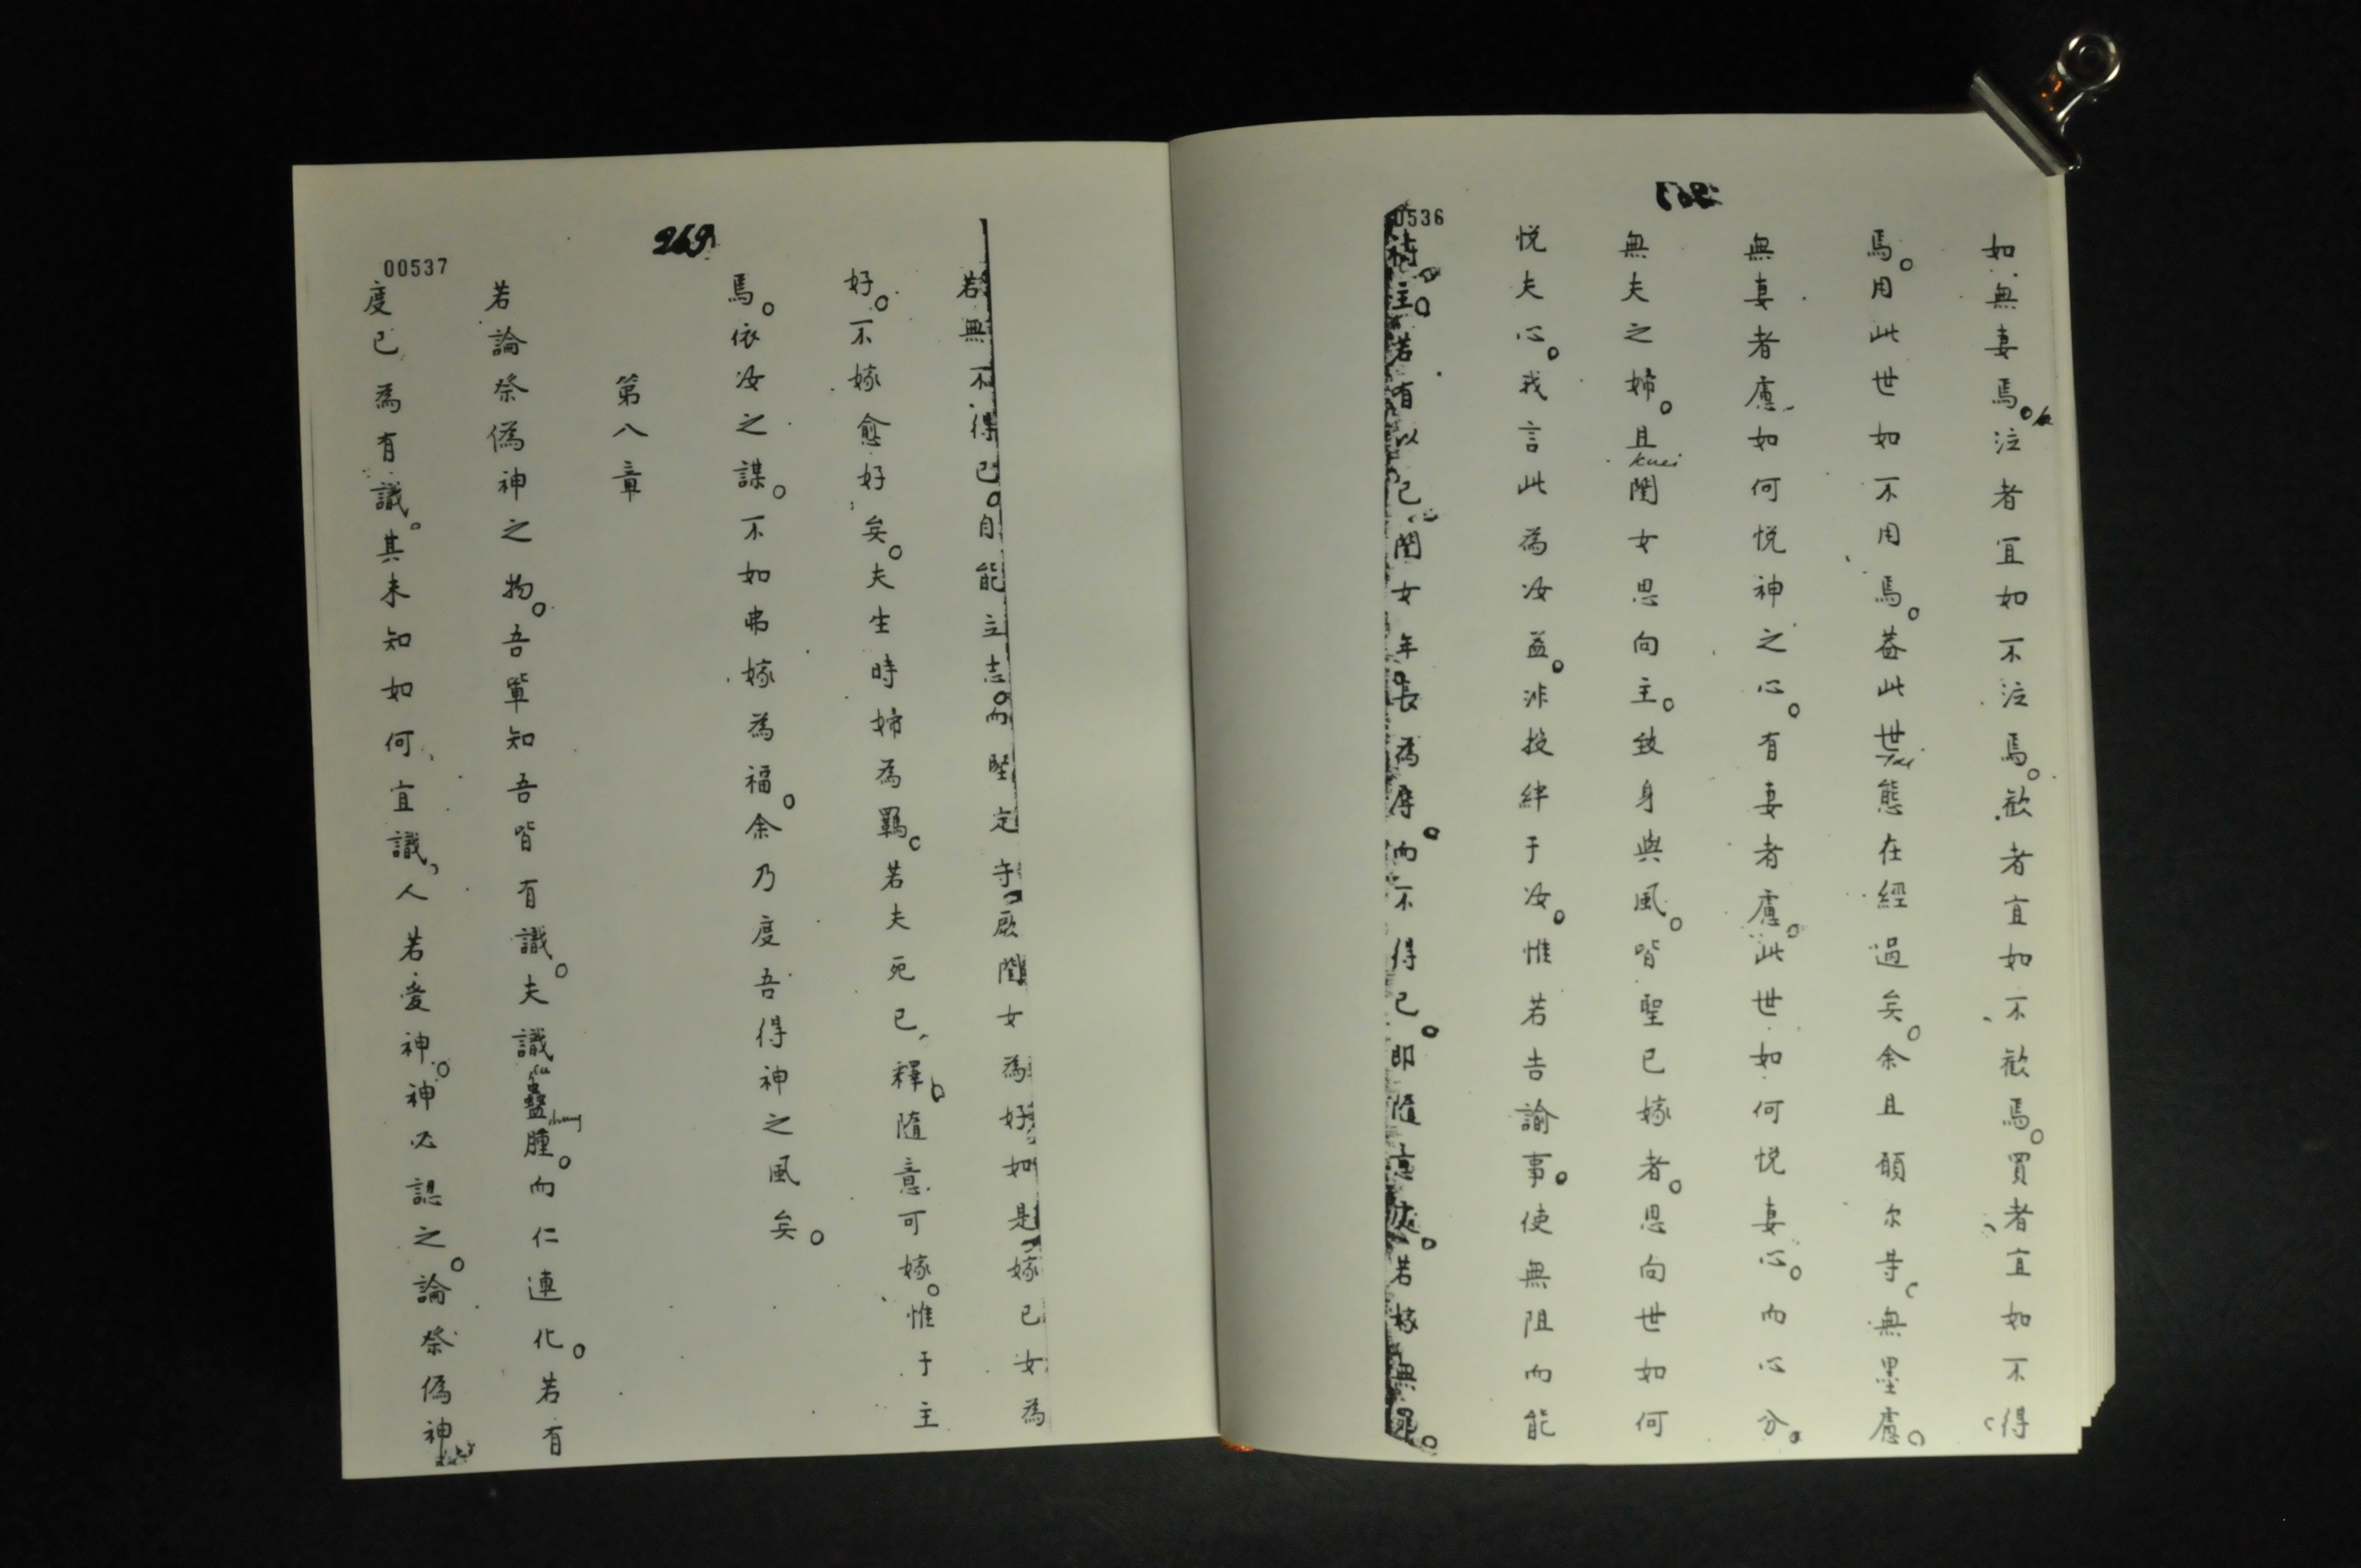 00536
如無妻焉。注者宜如不泣焉。歓者宜如不歓焉。買者宜如不得
焉。用此世如不用焉。葢此世態在經過矣。余且願尔等無墨慮。
無妻者慮如何悅神之心。有妻者慮此世如何悅妻心。而心分。
無夫之婦。且閨女思向主。致身與風。皆聖已嫁者。思向世如何
悅夫心。我言此為汝益。非投絆于汝。惟若告諭事。使無阻而能
主。若有以己閨女年長為辱。而不得已。即隨意。若嫁無
269
00537
若無不得已。自能立志。而堅定守厥閨女為好。如是嫁己女為
好。不嫁愈好矣。夫生時婦為羈。若夫死已釋。隨意可嫁。惟于主
焉。依汝之謀。不如弗嫁為福。余乃度吾得神之風矣。
第八章
若論祭偽神之物。吾輩知吾皆有識。夫識蠱腫。而仁連化。若有
度已為有識。其未知如何宜識、人若愛神。神必認之。論祭偽神